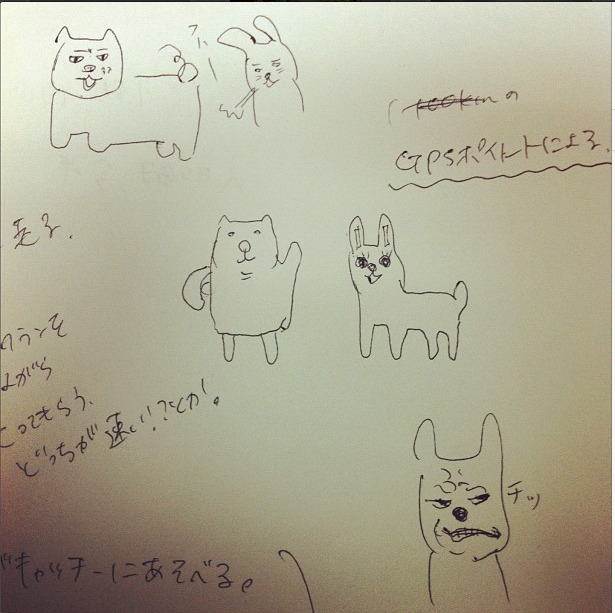 の
GPSポイントによる。
走る。
クランを
ながら
こってもらう、
どっちが速い!?とか。
チッ
"キャッチーにあそべる。